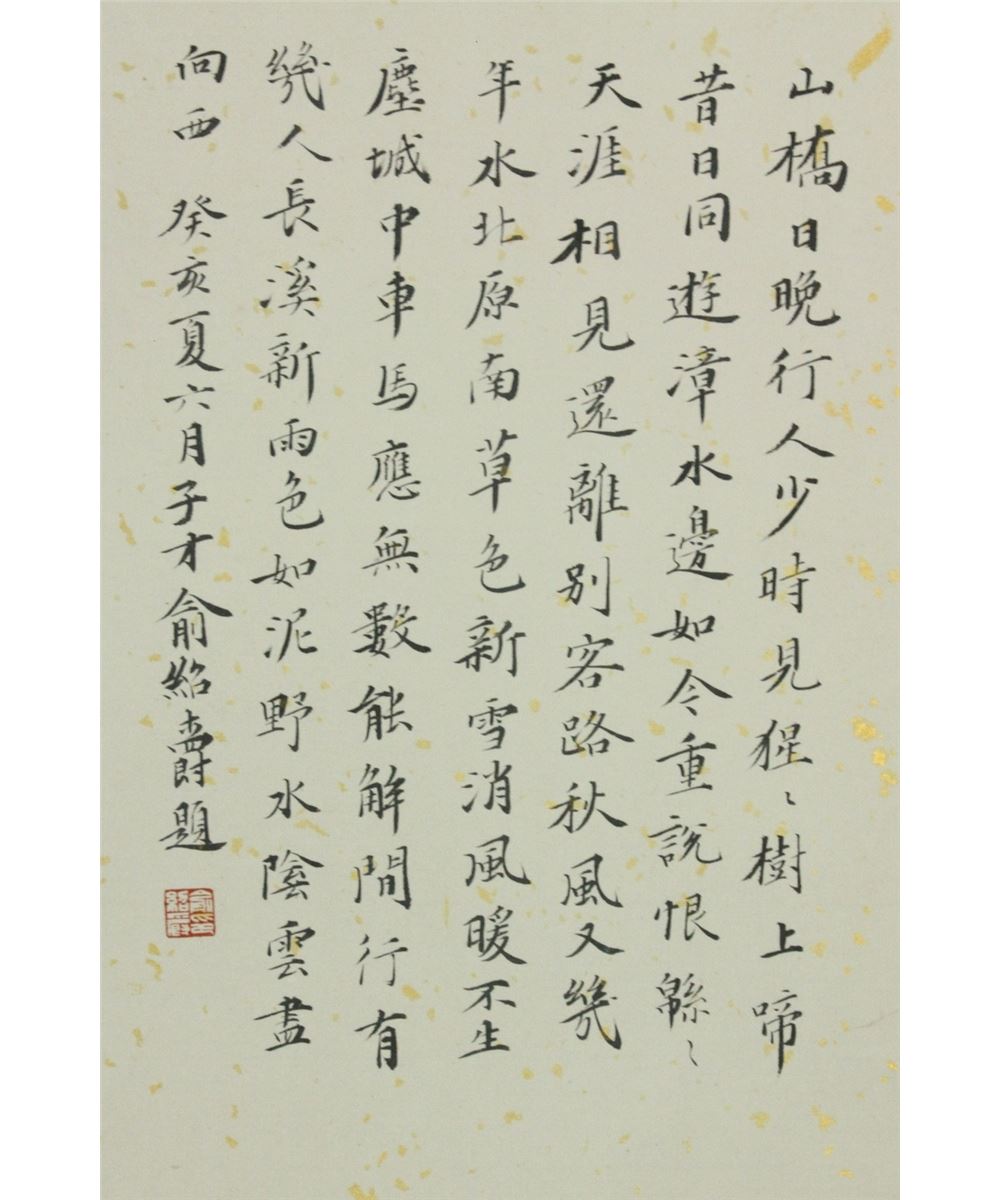 山橋日晚行人少時見猩〻樹上啼
昔日同遊漳水邊如今重說恨緜〻
天涯相見還離別客路秋風又幾
年水北原南草色新雪消風暖不生
塵城中車馬應無數能解閒行有
幾人長溪新雨色如泥野水陰雲盡
向西 癸亥夏六月子才俞紹爵題
俞印紹爵